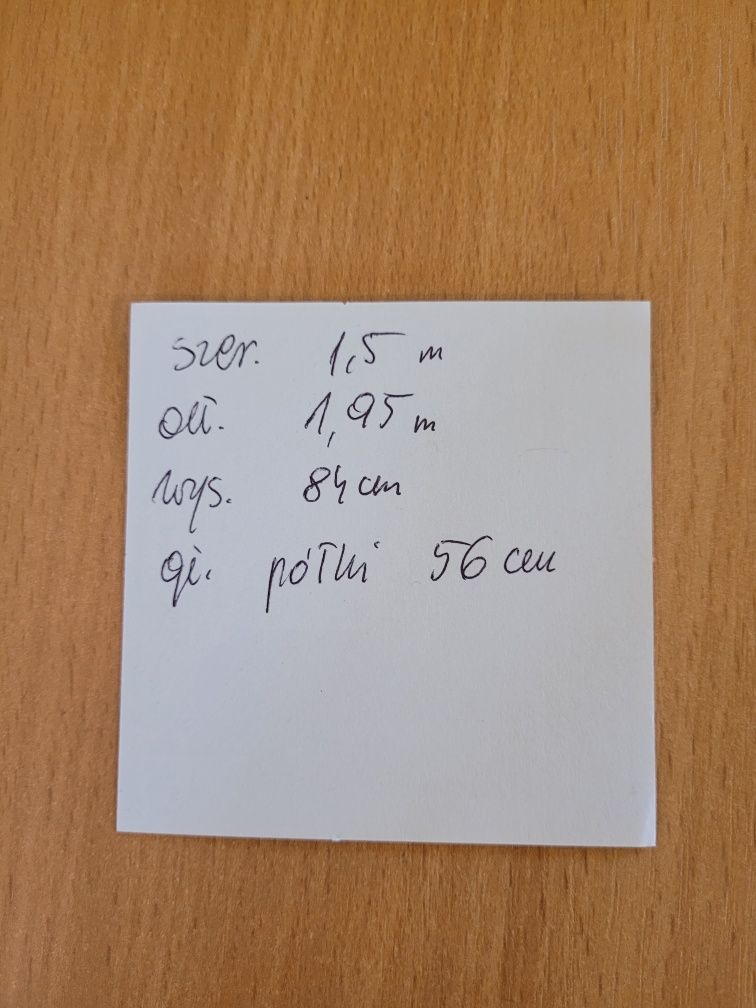 szer. 1,5 m
dł. 1,95 m
wys. 84 cm
gł. półki 56 cm